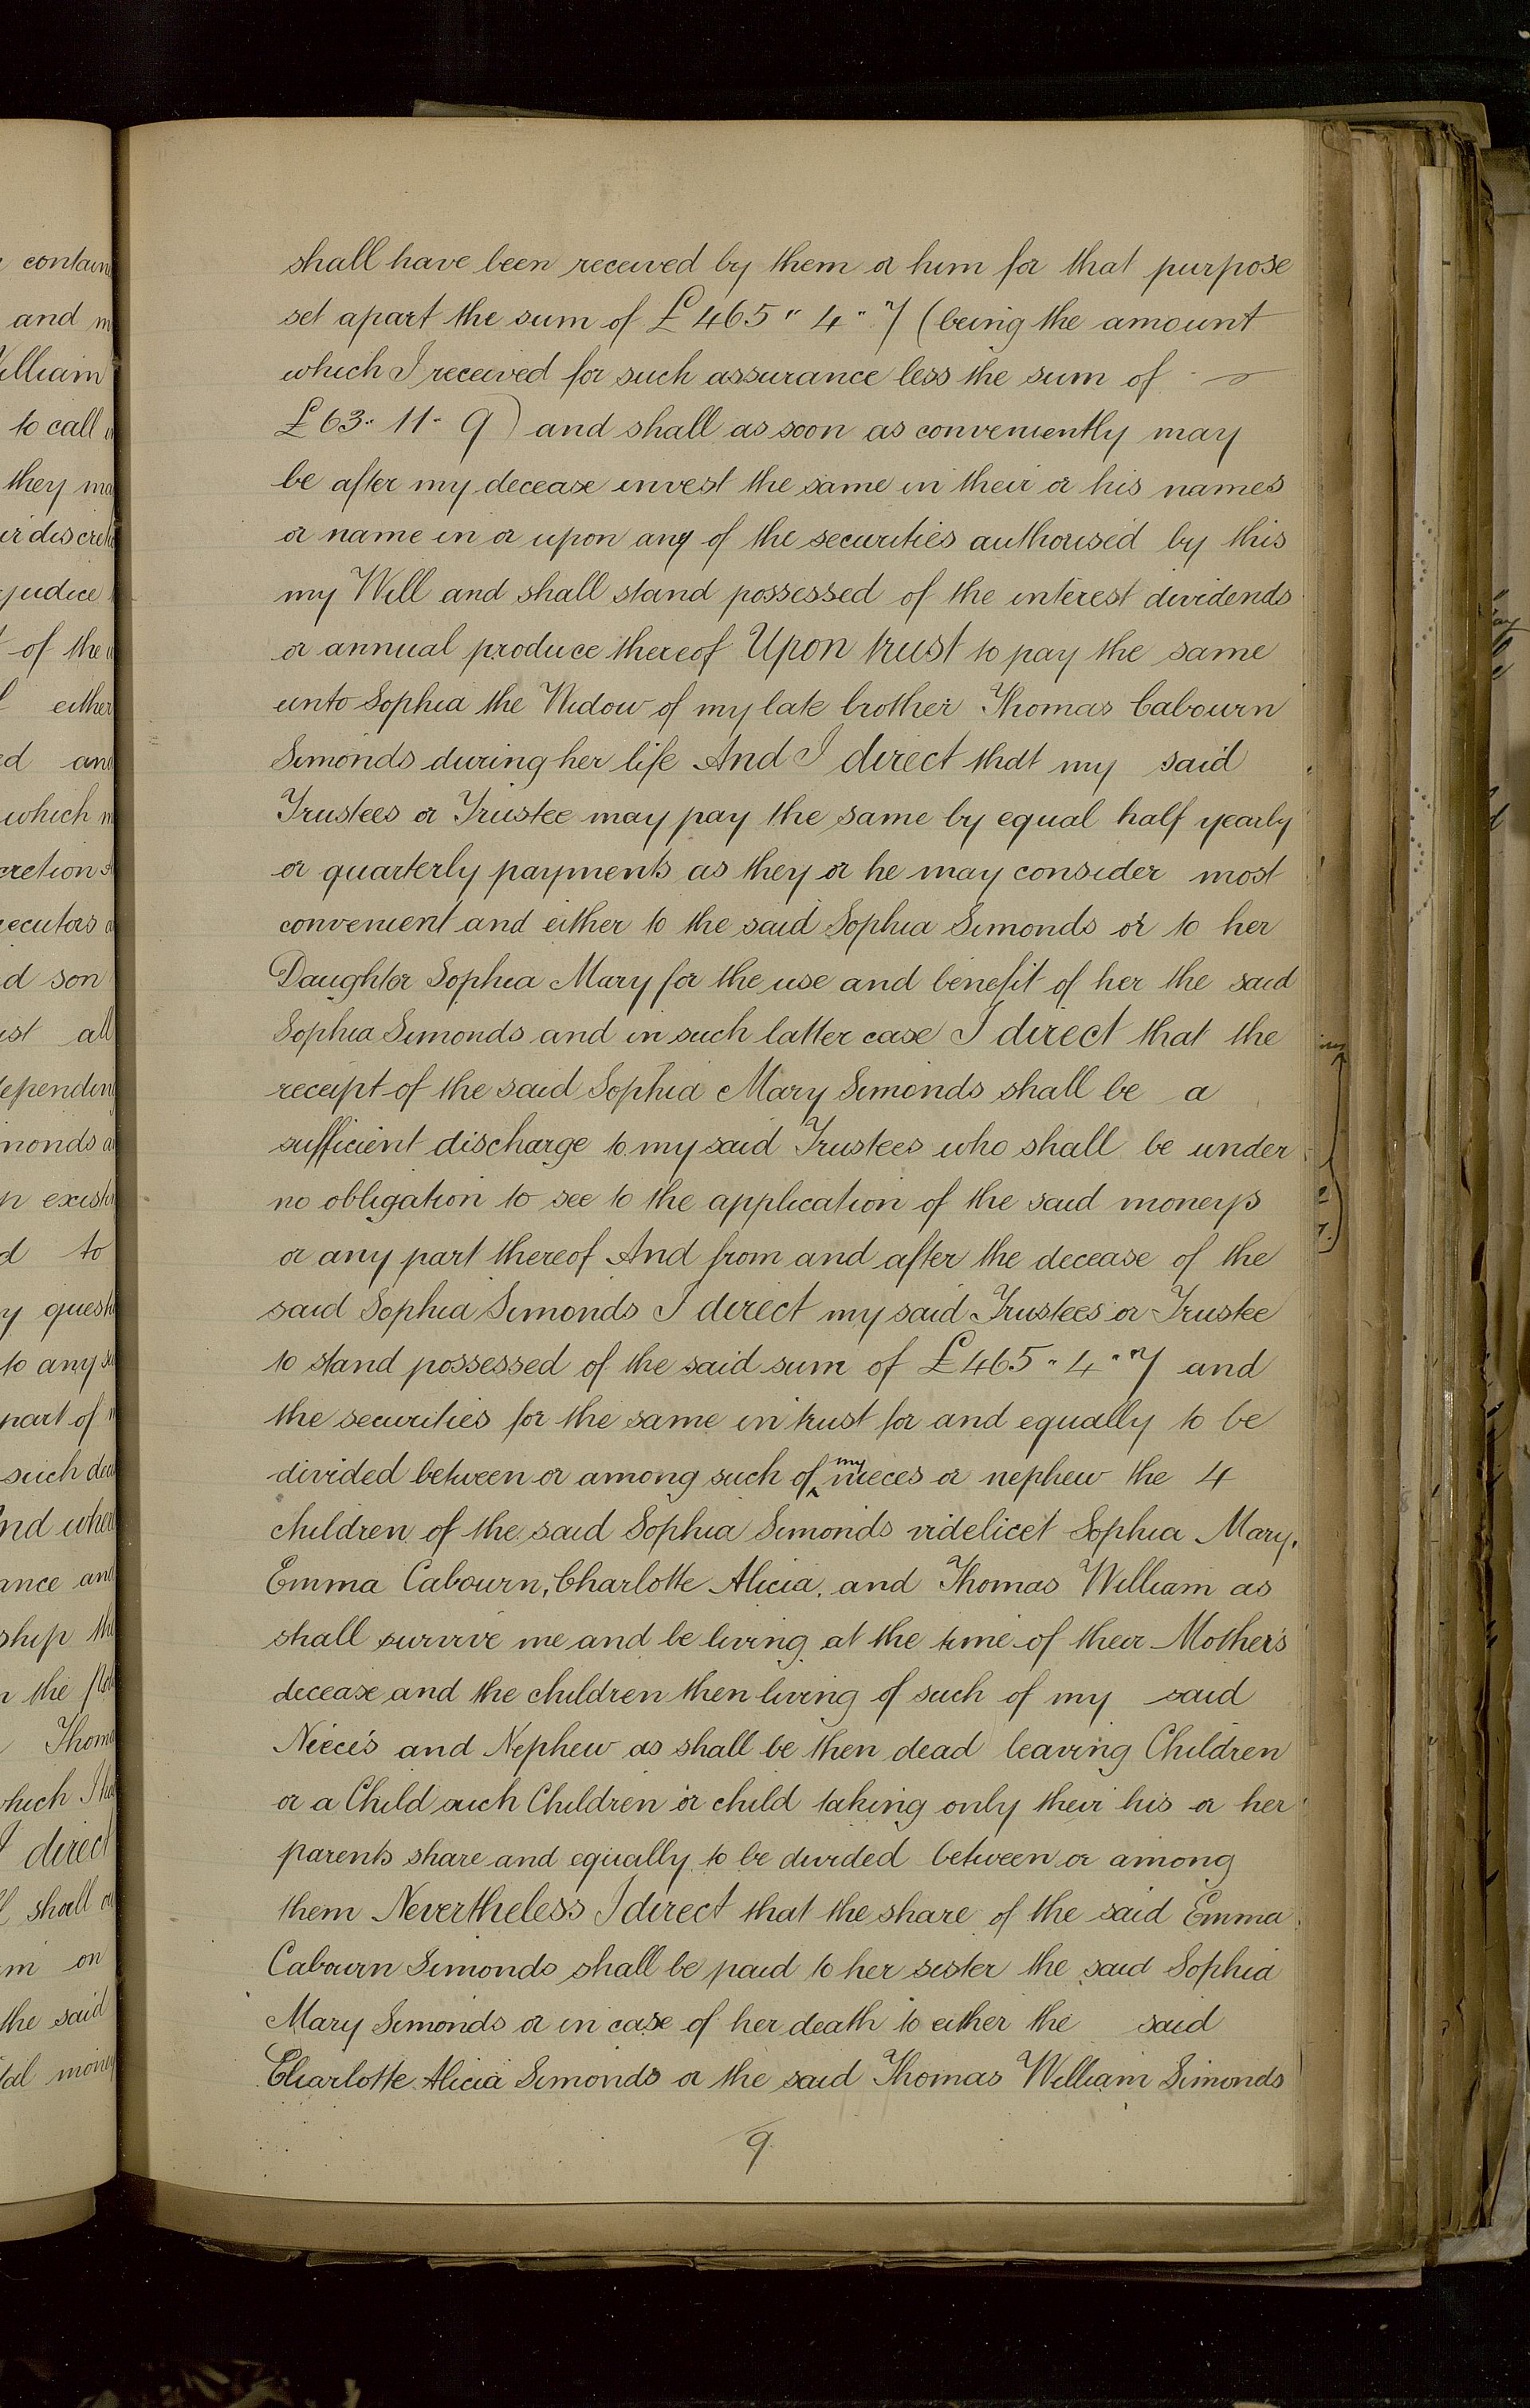 shall have been received by them or him for that purpose
set apart the sum of £465" 4" 7 (being the amount
which I received for such assurance less the sum of
£63" 11" 9) and shall as soon as conveniently may
be after my decease invest the same in their or his names
or name in or upon any of the securities authorised by this
my Will and shall stand possessed of the interest dividends
or annual produce thereof Upon trust to pay the same
unto Sophia the Widow of my late brother Thomas Cabourn
Simonds during her life And I direct that my said
Trustees or Trustee may pay the same by equal half yearly
or quarterly payments as they or he may consider most
convenient and either to the said Sophia Simonds or to her
Daughter Sophia Mary for the use and benefit of her the said
Sophia Simonds and in such latter case I direct that the
receipt of the said Sophia Mary Simonds shall be a
sufficient discharge to my said Trustees who shall be under
no obligation to see to the application of the said moneys
or any part thereof And from and after the decease of the
said Sophia Simonds I direct my said Trustees or Trustee
to stand possessed of the said sum of £465" 4" 7 and
the securities for the same in trust for and equally to be
divided between or among such of my nieces or nephew the 4
children of the said Sophia Simonds videlicet Sophia Mary,
Emma Cabourn, Charlotte Alicia, and Thomas William as
shall survive me and be living at the time of their Mother's
decease and the children then living of such of my said
Nieces and Nephew as shall be then dead leaving Children
or a Child such Children or child taking only their his or her
parents share and equally to be divided between or among
them Nevertheless I direct that the share of the said Emma
Cabourn Simonds shall be paid to her sister the said Sophia
Mary Simonds or in case of her death to either the said
Charlotte Alicia Simonds or the said Thomas William Simonds
9